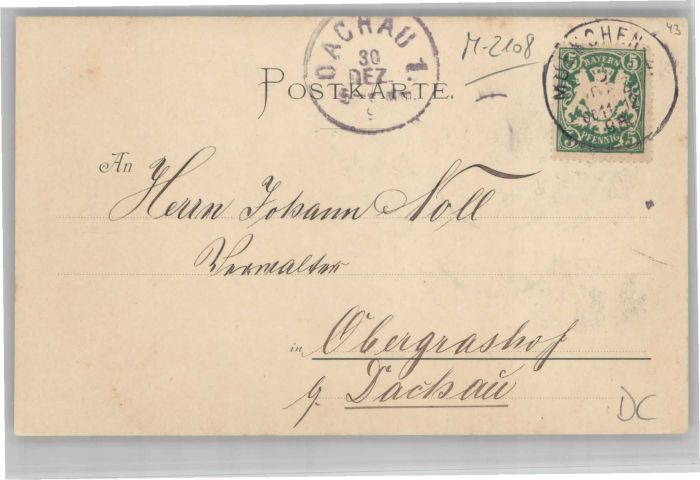 DACHAU 1.
30
DEZ.
M-2108
43
MUENCHEN
5 BAYERN 5
5 PFENNIG 5
POSTKARTE.
An
Herrn Johann Noll
Verwalter
in Obergrashof
Dachau
DC